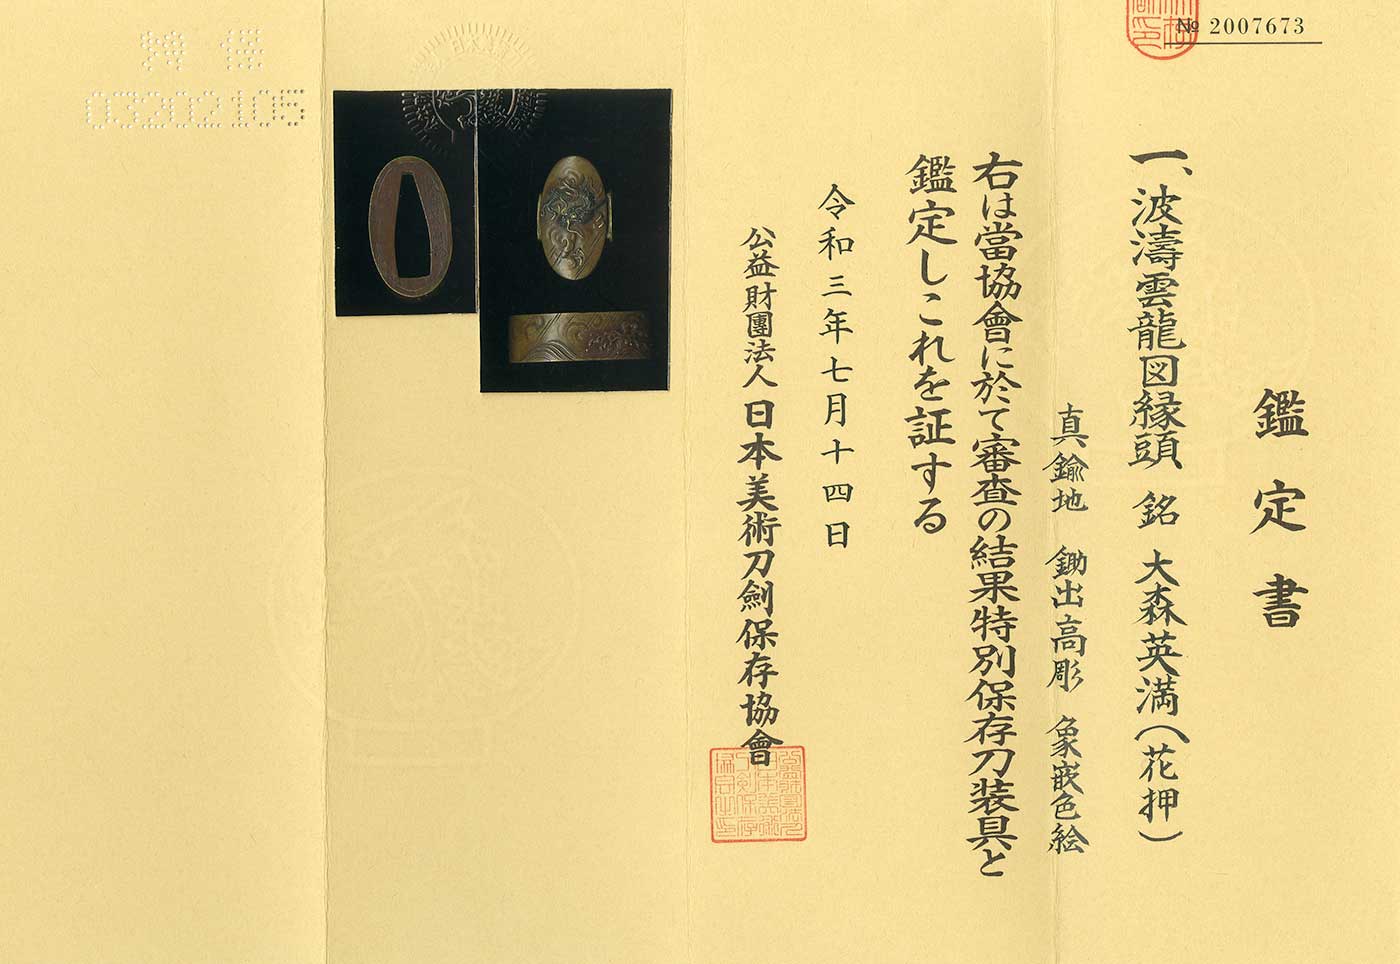 № 2007673
鑑定書
一、波濤雲龍図縁頭 銘 大森英満(花押)
真鍮地 鋤出高彫 象嵌色絵
右は當協會に於て審査の結果特別保存刀装具と
鑑定しこれを証する
令和三年七月十四日
公益財團法人 日本美術刀劍保存協會
03202105